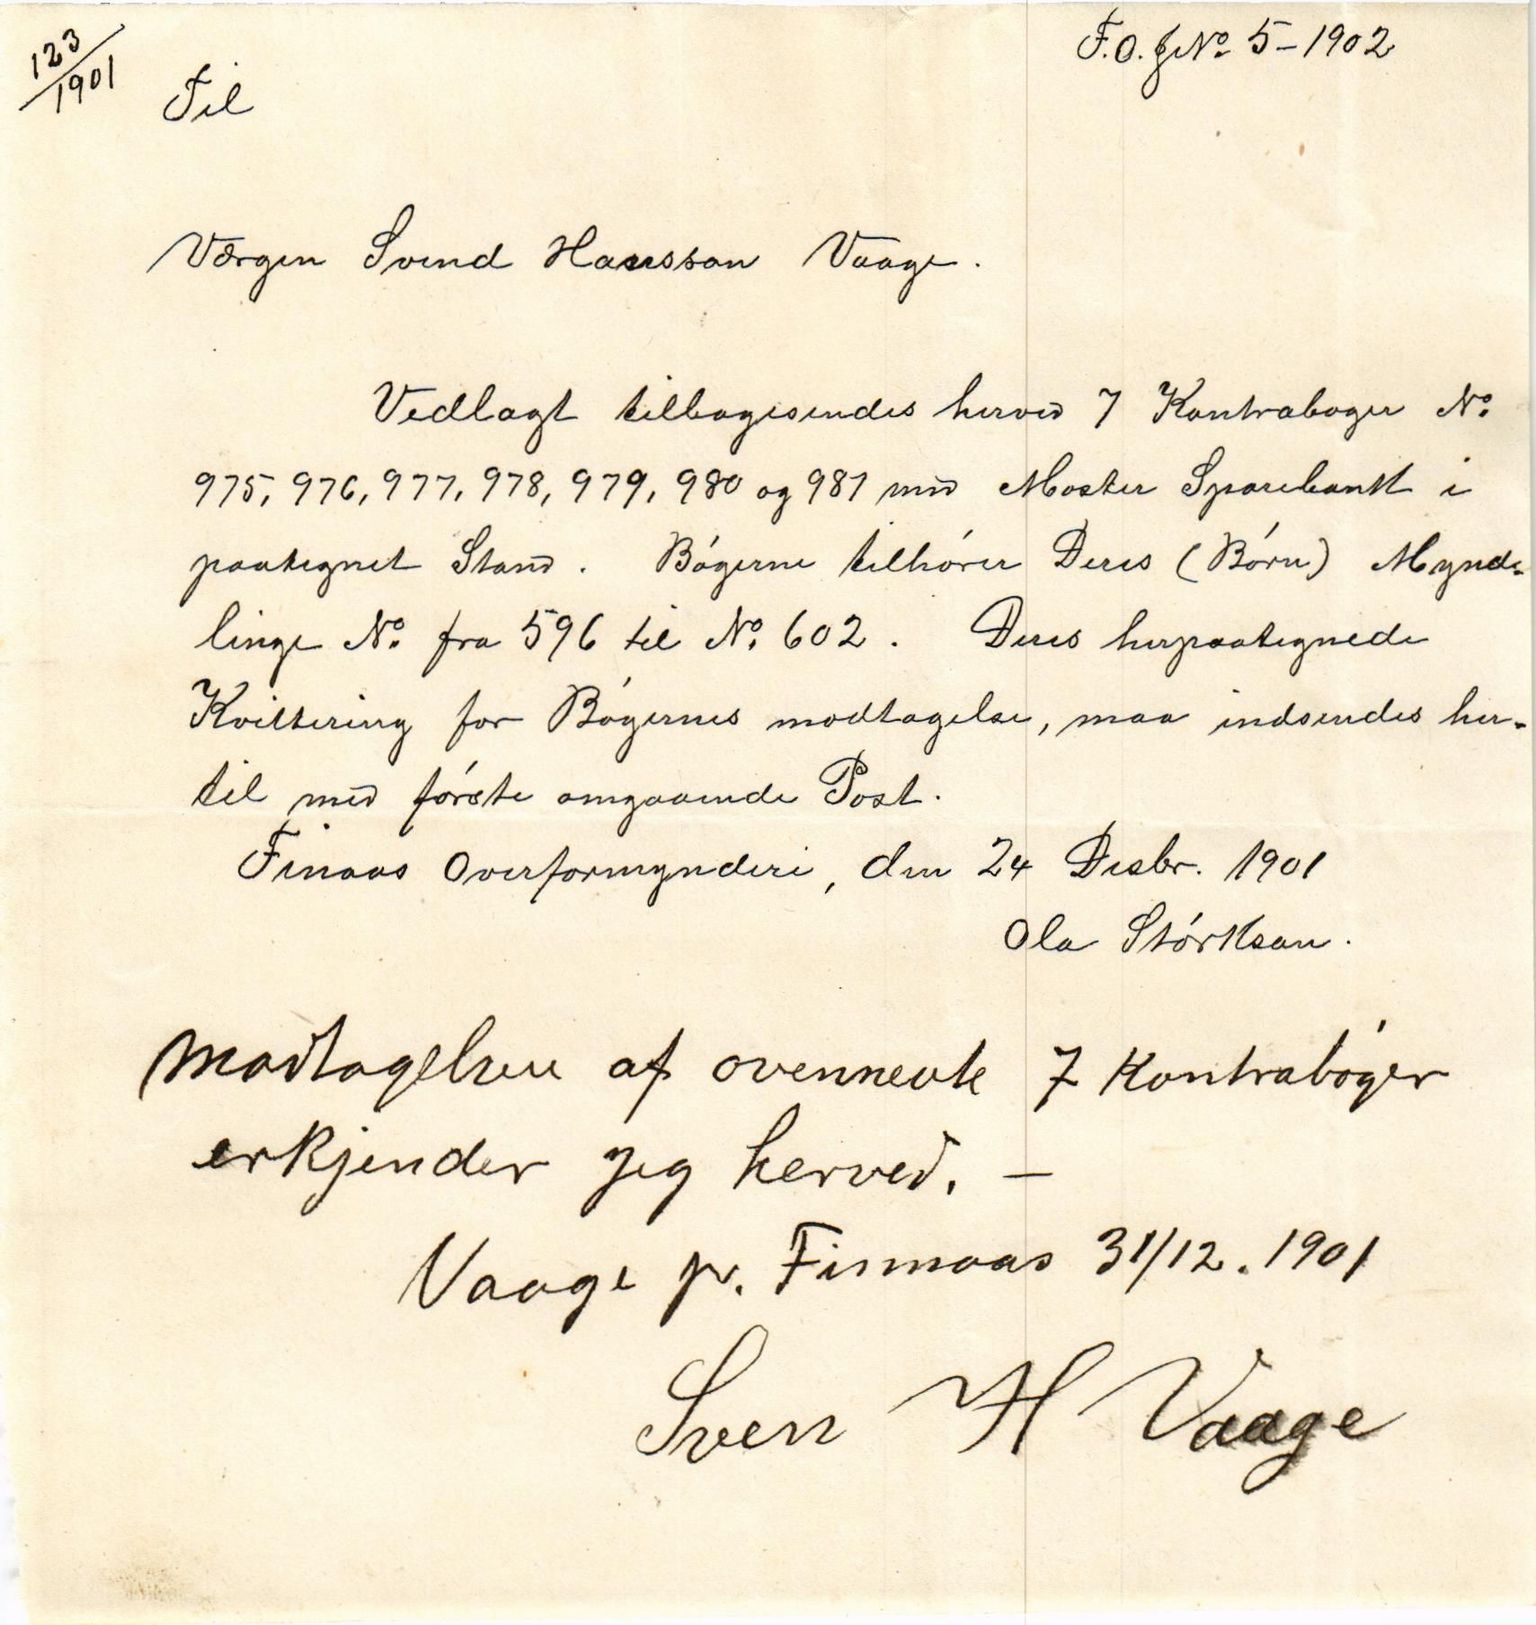 123/1901
F.O.JNo 5-1902
Til
Værgen Svend Hansson Vaage.
Vedlagt tilbagesendes herved 7 Kontrabøger No.
975, 976, 977, 978, 979, 980 og 981 med Moster Sparebank i
paategnet Stand. Bøgerne tilhører Deres (Børn) Mynd-
linge No. fra 596 til No. 602. Deres herpaategnede
Kvittering for Bøgernes modtagelse, maa indsendes her-
til med første omgaaende Post.
Finaas Overformynderi, den 24 Desbr. 1901
Ola Størkson.
Modtagelsen af ovennevte 7 Kontrabøger
erkjender jeg herved. —
Vaage pr. Finnaas 31/12. 1901
Sven H Vaage